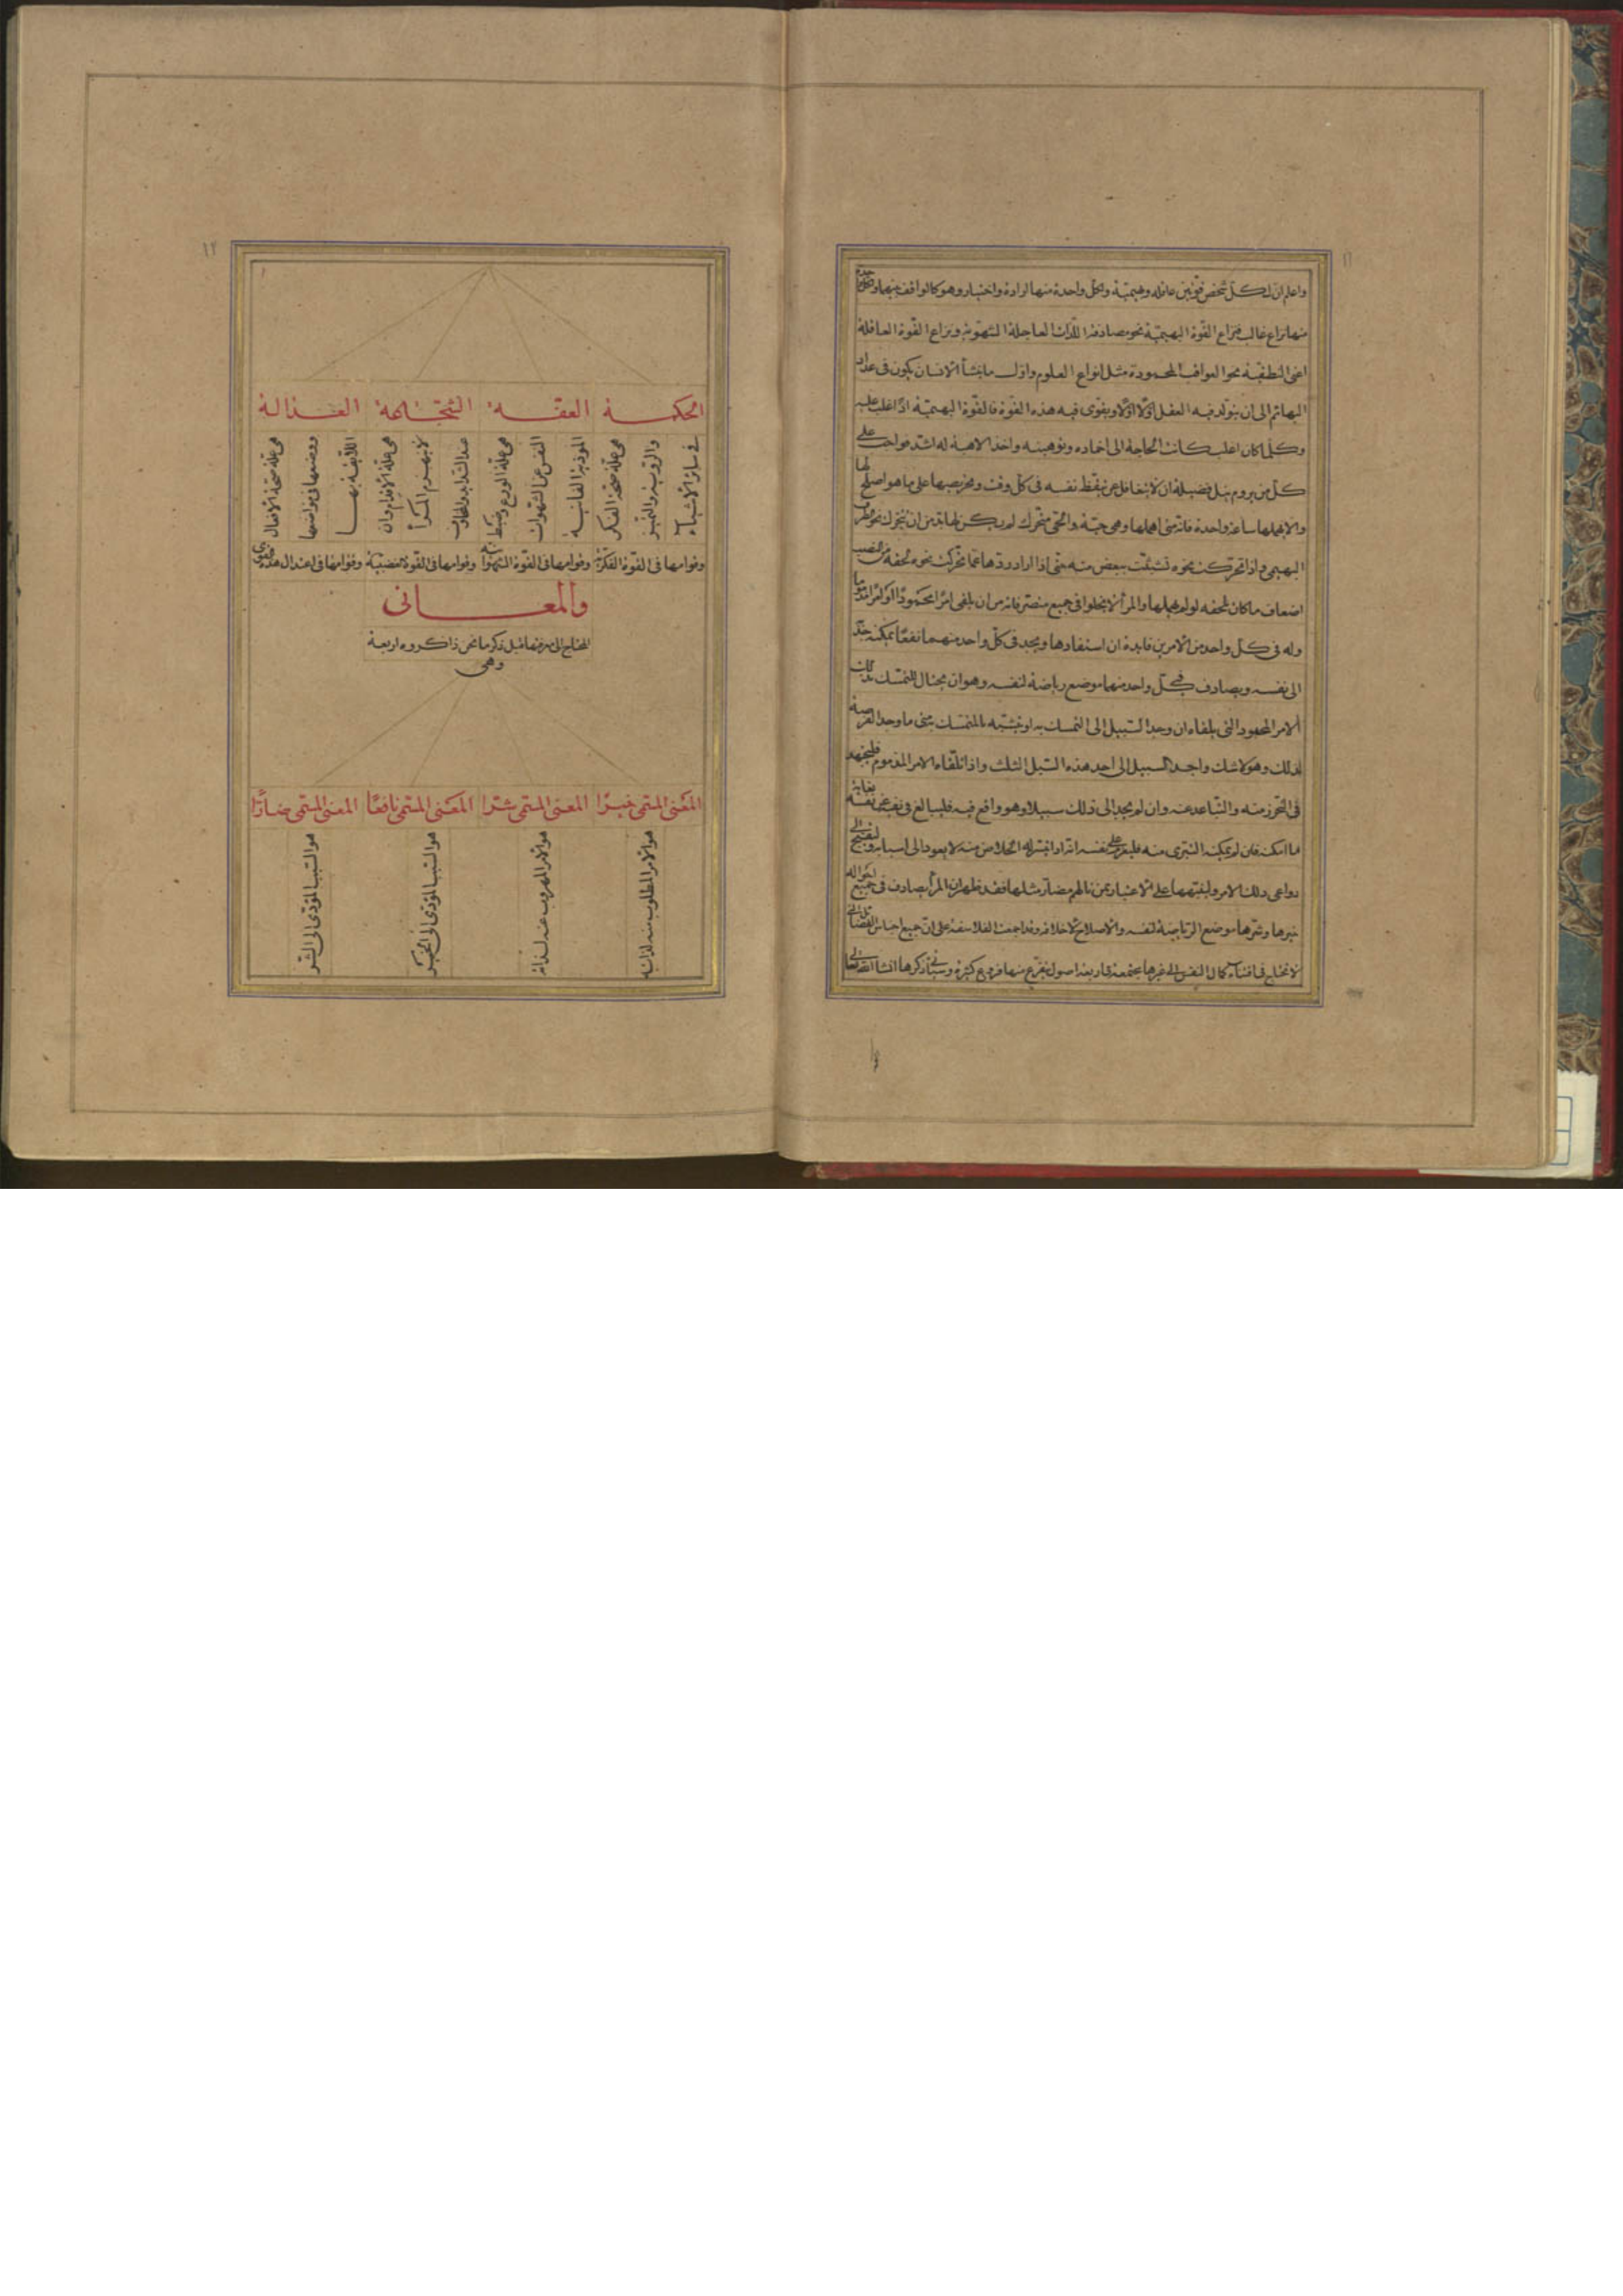 واعلم ان لكل شخص قوتين عاقلة وبهيمية ولكل واحدة منهما ارادة واختيار وهو كالواقف بينهما ولكل واحدة
منهما نزاع غالب فنزاع القوة البهيمية نحو مصادفة اللذات العاجلة الشهوية ونزاع القوة العاقلة
اعنى النطقية نحو العواقب المحمودة مثل انواع العلوم واول ما ينشأ الانسان يكون فى عداد
البهائم الى ان يتولد فيه العقل اولا اولا ويقوى فيه هذه القوة فالقوة البهيمية اذا اغلب عليه
وكلما كان اغلب كانت الحاجة الى اخماده وتوهينه واخذ الاهبة له اشد فواجب على
كل من يروم نيل فضيلة ان لا يتغافل عن تيقظ نفسه فى كل وقت وتحريضها على ما هو اصلح لها
والا يهملها ساعة واحدة فانه متى اهملها وهى حية والحى متحرك لم يكن لها بد من ان تتحرك نحو الطرف
البهيمى واذا تحركت نحوه تشبثت ببعض منه حتى اذا اراد ردها عما تحركت نحوه لحقه من النصب
اضعاف ما كان لحقه لو لم يهملها والمرأ لا يخلوا فى جميع متصرفاته من ان يلقى امرا محمودا او امرا مذموما
وله فى كل واحد من الامرين فايدة ان استفادها ويجد فى كل واحد منهما نفعا يمكنه جذبه
الى نفسه ويصادف فى كل واحد منهما موضع رياضة لنفسه وهو ان يحتال للتمسك بذلك
الامر المحمود الذى يلقاه ان وجد السبيل الى التمسك به او يتشبه بالمتمسك به متى ما وجد الفرصة
لذلك وهو لا شك واجد السبيل الى احد هذه السبل الثلث واذا تلقاه الامر المذموم فليجتهد
فى التحرز منه والتباعد عنه وان لم يجد الى ذلك سبيلا وهو واقع فيه فليبالغ فى نفيه عن نفسه بغاية
ما امكنه فان لم يمكنه التبرى منه فليعزم على نفسه انه اذا تيسر له الخلاص منه لا يعود الى اسبابه وليقبح الى
دواعى ذلك الامر ولينبهها على الاعتبار بمن نالهم مضار مثلها فقد ظهر ان المرأ يصادف فى جميع احواله
خيرها وشرها موضع الرياضة لنفسه والاصلاح لاخلاقه وقد اجمعت الفلاسفة على ان جميع اجناس الفضائل التى
لا تحتاج فى اقتناء كمال النفس الى غيرها مجتمعة فى اربعة اصول تتفرع منها فروع كثيرة وسيأتى ذكرها انشا الله تعالى
١١
١٢
الحكمة العفة الشجاعة العدالة
هى علة صحة الفكر
والروية والتمييز
فى سائر الاشياء
هى علة الورع وضبط
النفس عن الشهوات
الموذية الفانية
هى علة الاقدام وان
لا ينهزم المرأ
عند الشدايد والمخاوف
هى علة صحة الافعال
ووضعها فى مواضعها
اللايقة بها
وقوامها فى القوة الفكرية وقوامها فى القوة الشهوانية وقوامها فى القوة الغضبية وقوامها فى اعتدال هذه القوى
والمعانى
المحتاج الى معرفتها قبل ذكر ما نحن ذاكروه اربعة
وهى
المعنى المسمى خيرا المعنى المسمى شرا المعنى المسمى نافعا المعنى المسمى ضارا
هو الامر المطلوب منه لذاته
هو الامر المهروب عنه لذاته
هو السبب المؤدى الى الخير
هو السبب المؤدى الى الشر